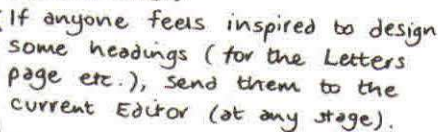 If anyone feels inspired to design
some headings (for the Letters
page etc.), send them to the
current Editor (at any stage).